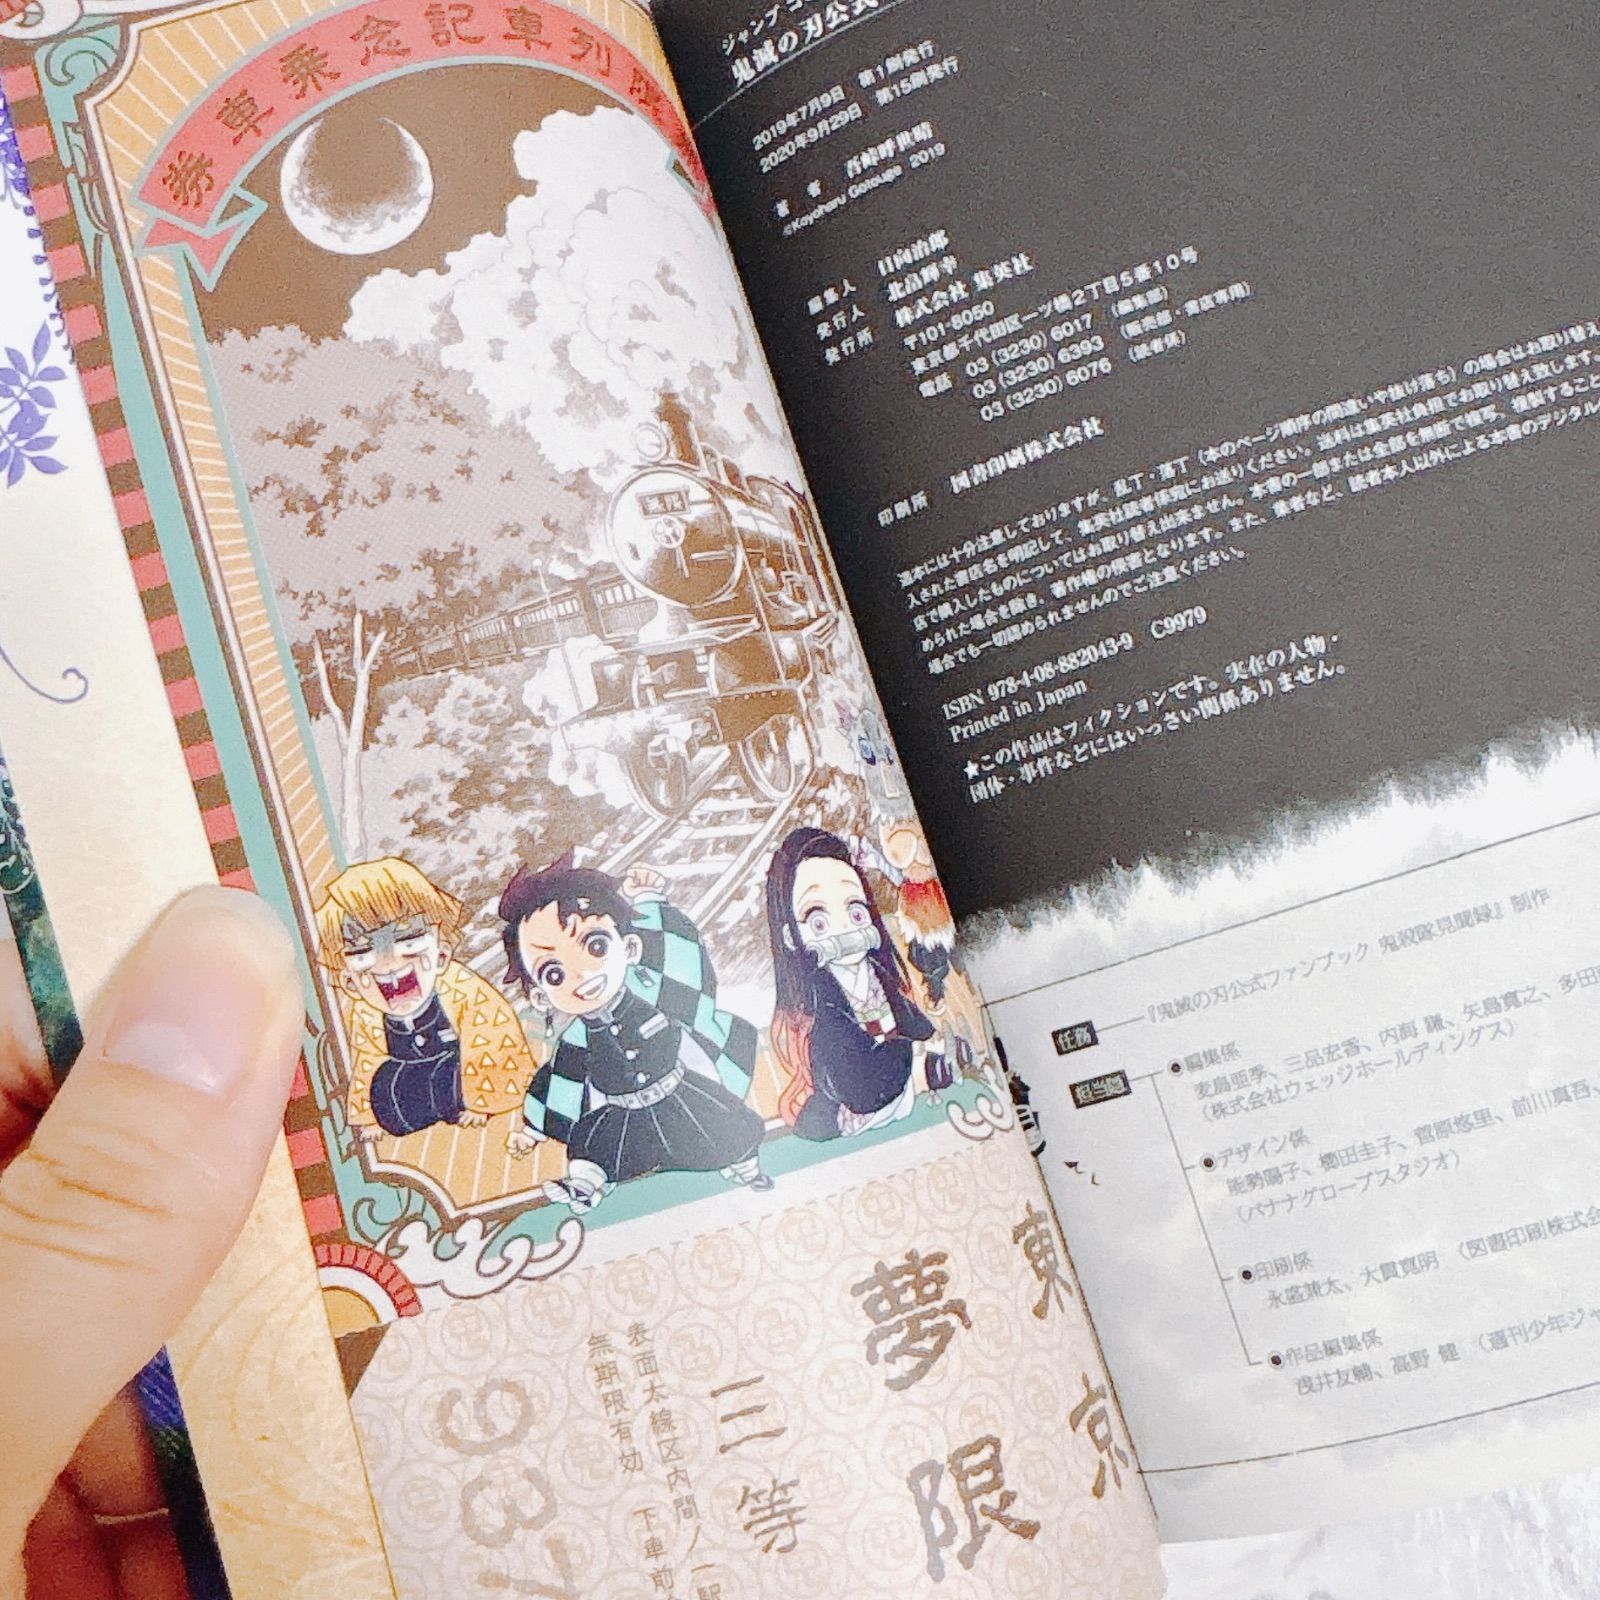 券車乗念記車列限
東京
夢限
三等
表面太線区内間ノ一駅
無期限有効 下車前
鬼滅の刃公式
2019年7月9日 第1刷発行
2020年9月29日 第15刷発行
著者 吾峠呼世晴
©Koyoharu Gotouge 2019
編集人 日向治郎
発行人 北畠輝幸
発行所 株式会社 集英社
〒101-8050
東京都千代田区一ツ橋2丁目5番10号
電話 03(3230)6017 (編集部)
03(3230)6393 (販売部・書店専用)
03(3230)6076 (読者係)
印刷所 図書印刷株式会社
造本には十分注意しておりますが、乱丁・落丁(本のページ順序の間違いや抜け落ち)の場合はお取り替え
入された書店名を明記して、集英社読者係宛にお送りください。送料は集英社負担でお取り替え致します。
店で購入したものについてはお取り替え出来ません。本書の一部または全部を無断で複写、複製すること
められた場合を除き、著作権の侵害となります。また、業者など、読者本人以外による本書のデジタル
場合でも一切認められませんのでご注意ください。
ISBN 978-4-08-882043-9 C9979
Printed in Japan
★この作品はフィクションです。実在の人物・
団体・事件などにはいっさい関係ありません。
任務 『鬼滅の刃公式ファンブック 鬼殺隊見聞録』制作
担当
●編集係
麦島亜季、三品宏香、内海 謙、矢島寛之、多田
(株式会社ウェッジホールディングス)
●デザイン係
能勢陽子、櫛田圭子、菅原悠里、前川真吾、
(バナナグローブスタジオ)
●印刷係
永盛兼太、大貫寛明 (図書印刷株式会
●作品編集係
浅井友輔、高野 健 (週刊少年ジャ